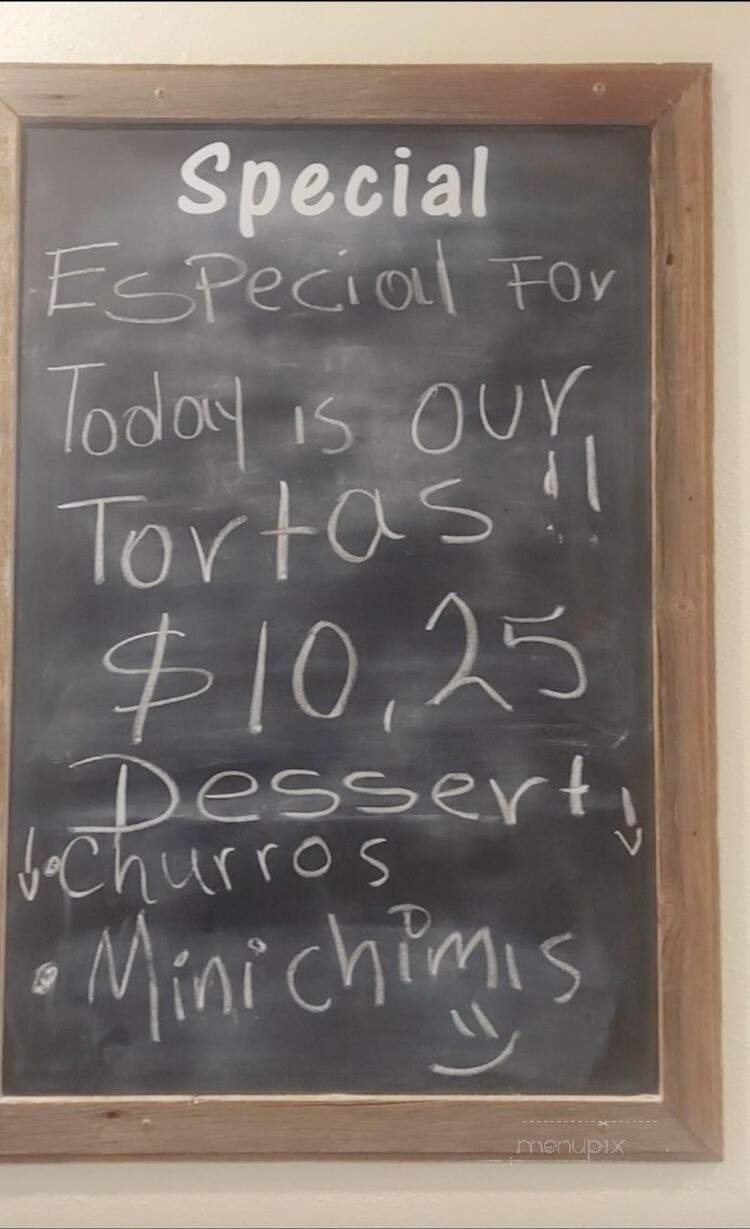 Special
Especial For
Today is our
Tortas !!
$10,25
Dessert
• Churros
• Mini chimis
menupix